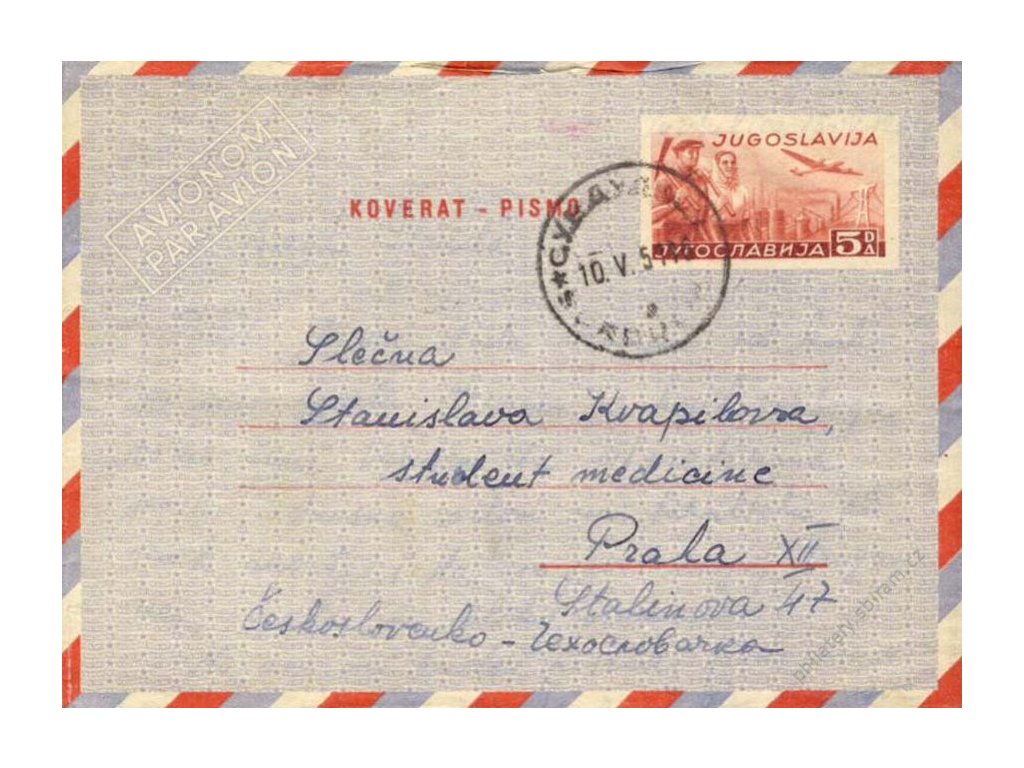 AVIONOM
PAR AVION
JUGOSLAVIJA
KOVERAT - PISMO
ЈУГОСЛАВИЈА 5 DA
10. V. 5
Slečna
Stanislava Kvapilova,
student medicine
Praha XII
Stalinova 47
Československo - Чехословачка
philately.sbiram.cz